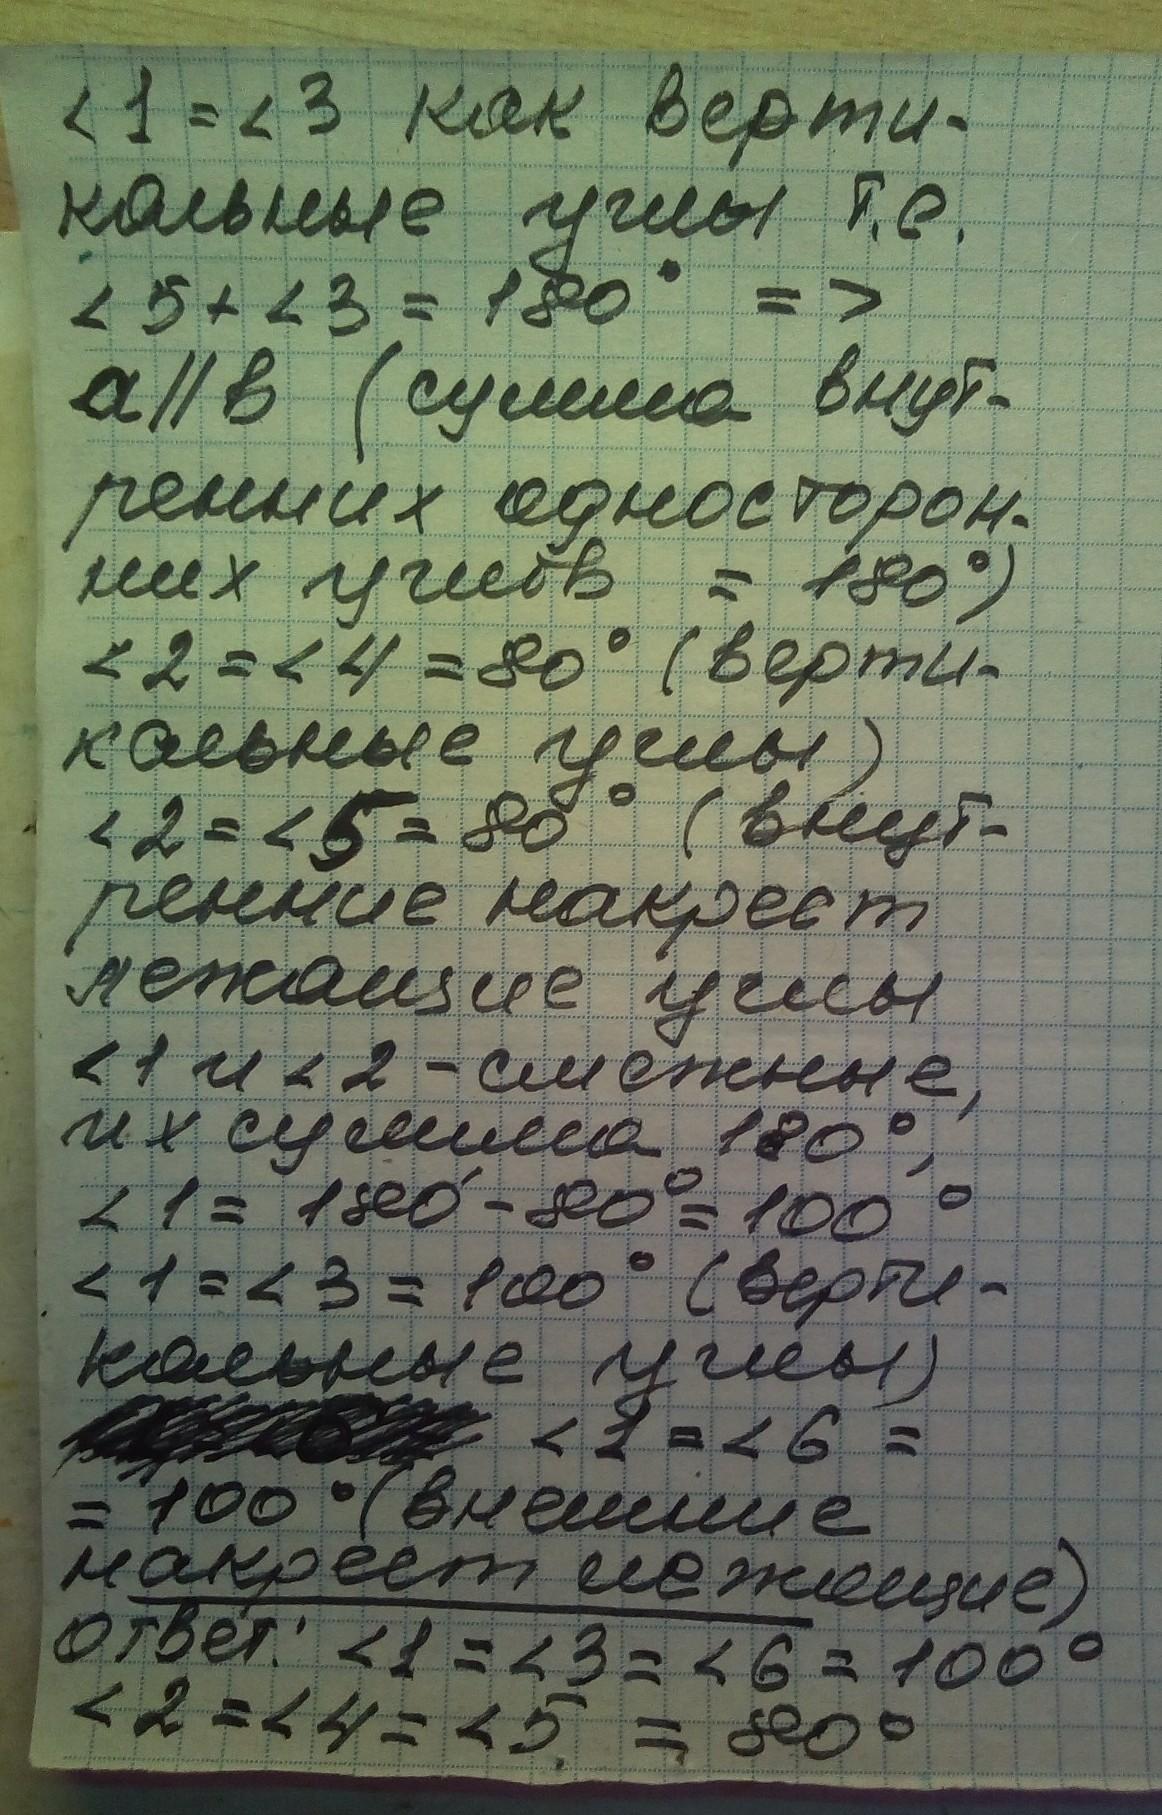 <1 = <3 как верти-
кальные углы т.е.
<5 + <3 = 180° =>
a//b (сумма внут-
ренних односторон-
них углов = 180°)
<2 = <4 = 80° (верти-
кальные углы)
<2 = <5 = 80° (внут-
ренние накрест
лежащие углы
<1 и <2 - смежные,
их сумма 180°,
<1 = 180° - 80° = 100°
<1 = <3 = 100° (верти-
кальные углы)
<1 = <6 =
= 100° (внешние
накрест лежащие)
ответ: <1 = <3 = <6 = 100°
<2 = <4 = <5 = 80°